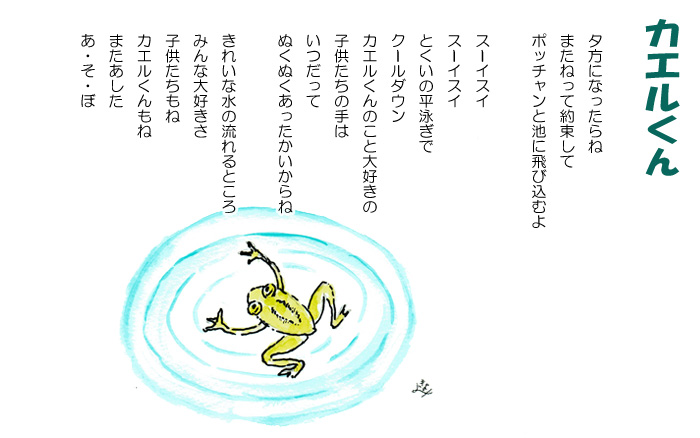 カエルくん
夕方になったらね
またねって約束して
ポッチャンと池に飛び込むよ
スーイスイ
スーイスイ
とくいの平泳ぎで
クールダウン
カエルくんのこと大好きの
子供たちの手は
いつだって
ぬくぬくあったかいからね
きれいな水の流れるところ
みんな大好きさ
子供たちもね
カエルくんもね
またあした
あ・そ・ぼ